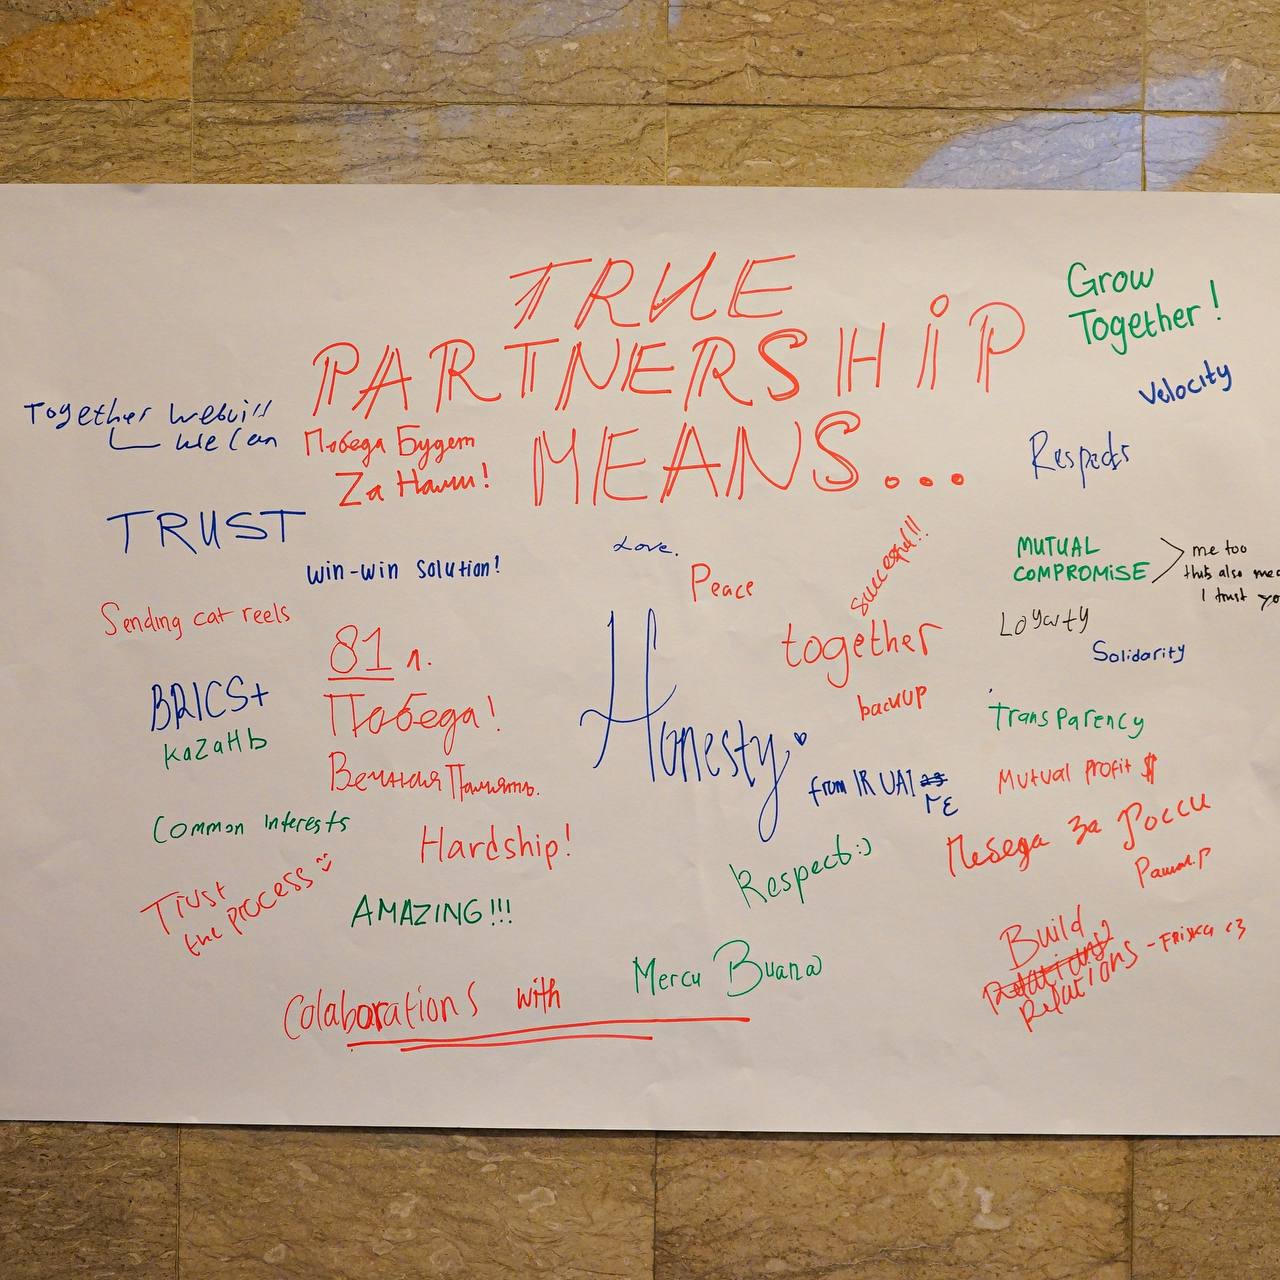 TRUE
PARTNERSHIP
MEANS...
Grow
Together!
Velocity
Together We
We Can
Победа Будет
Zа Нами!
Respects
TRUST
win-win solution!
Love.
Peace
successful!!
together
backup
MUTUAL
COMPROMISE
me too
this also
I trust
Loyalty
Solidarity
Sending cat reels
81 л.
Победа!
Вечная Память.
BRICS+
KaZaHb
Honesty
from
Transparency
Mutual profit $
Победа за
Common interests
Hardship!
Trust
the process
AMAZING!!!
Respect:)
Build
Relations
Relations - Friska <3
Colaborations with
Mercu Buana